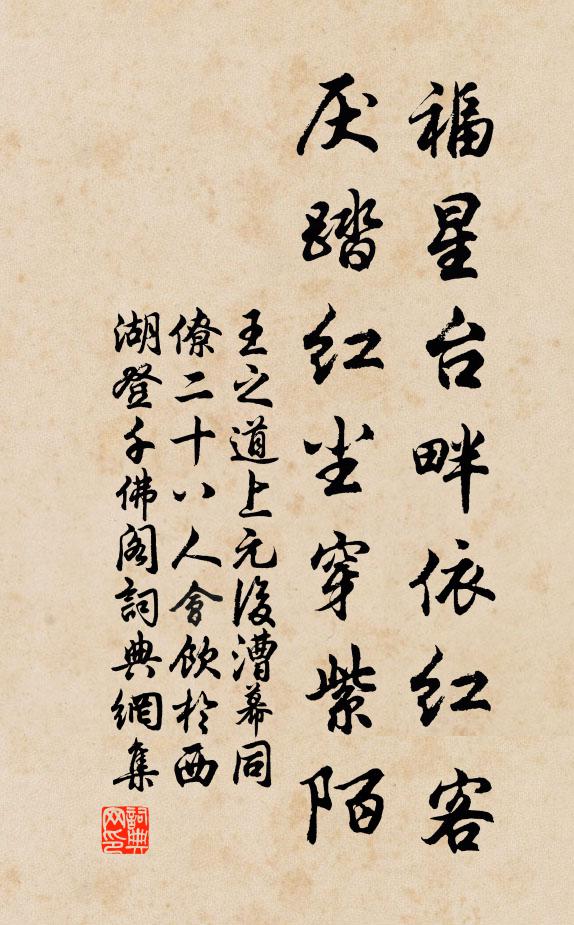 福星台畔依红客
厌踏红尘穿紫陌
王之道上元後漕幕同
僚二十八人會飲於西
湖登千佛阁詞典網集
詞典
网印